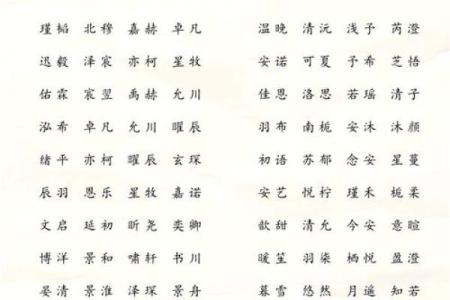 瑾韬 北穆 嘉赫 卓凡 温晚 清沅 浅予 芮澄
迟毅 泽宸 亦柯 星牧 安诺 可夏 予希 芝悟
佑霖 宸翌 禹赫 允川 佳恩 洛思 若瑶 清子
泓希 卓凡 允川 曜辰 羽布 南栀 安沐 沐颜
绪平 亦柯 曜辰 玄琛 初语 苏郁 念安 星蔓
辰羽 恩乐 星牧 嘉诺 安艺 悦柠 瑾禾 栀柔
文启 延初 昕尧 奕卿 歆甜 清允 今安 意暄
博洋 景和 啸轩 书川 暖笙 羽柒 栖悦 盈澄
晏清 景淮 泽琛 景舟 暮雪 悠然 月遥 知若